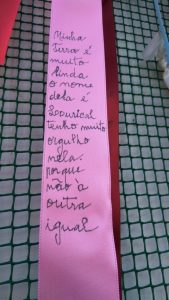 Minha
terra é
muito
linda
o nome
dela é
Louriçal
tenho muito
orgulho
nela.
porque
não à
outra
igual